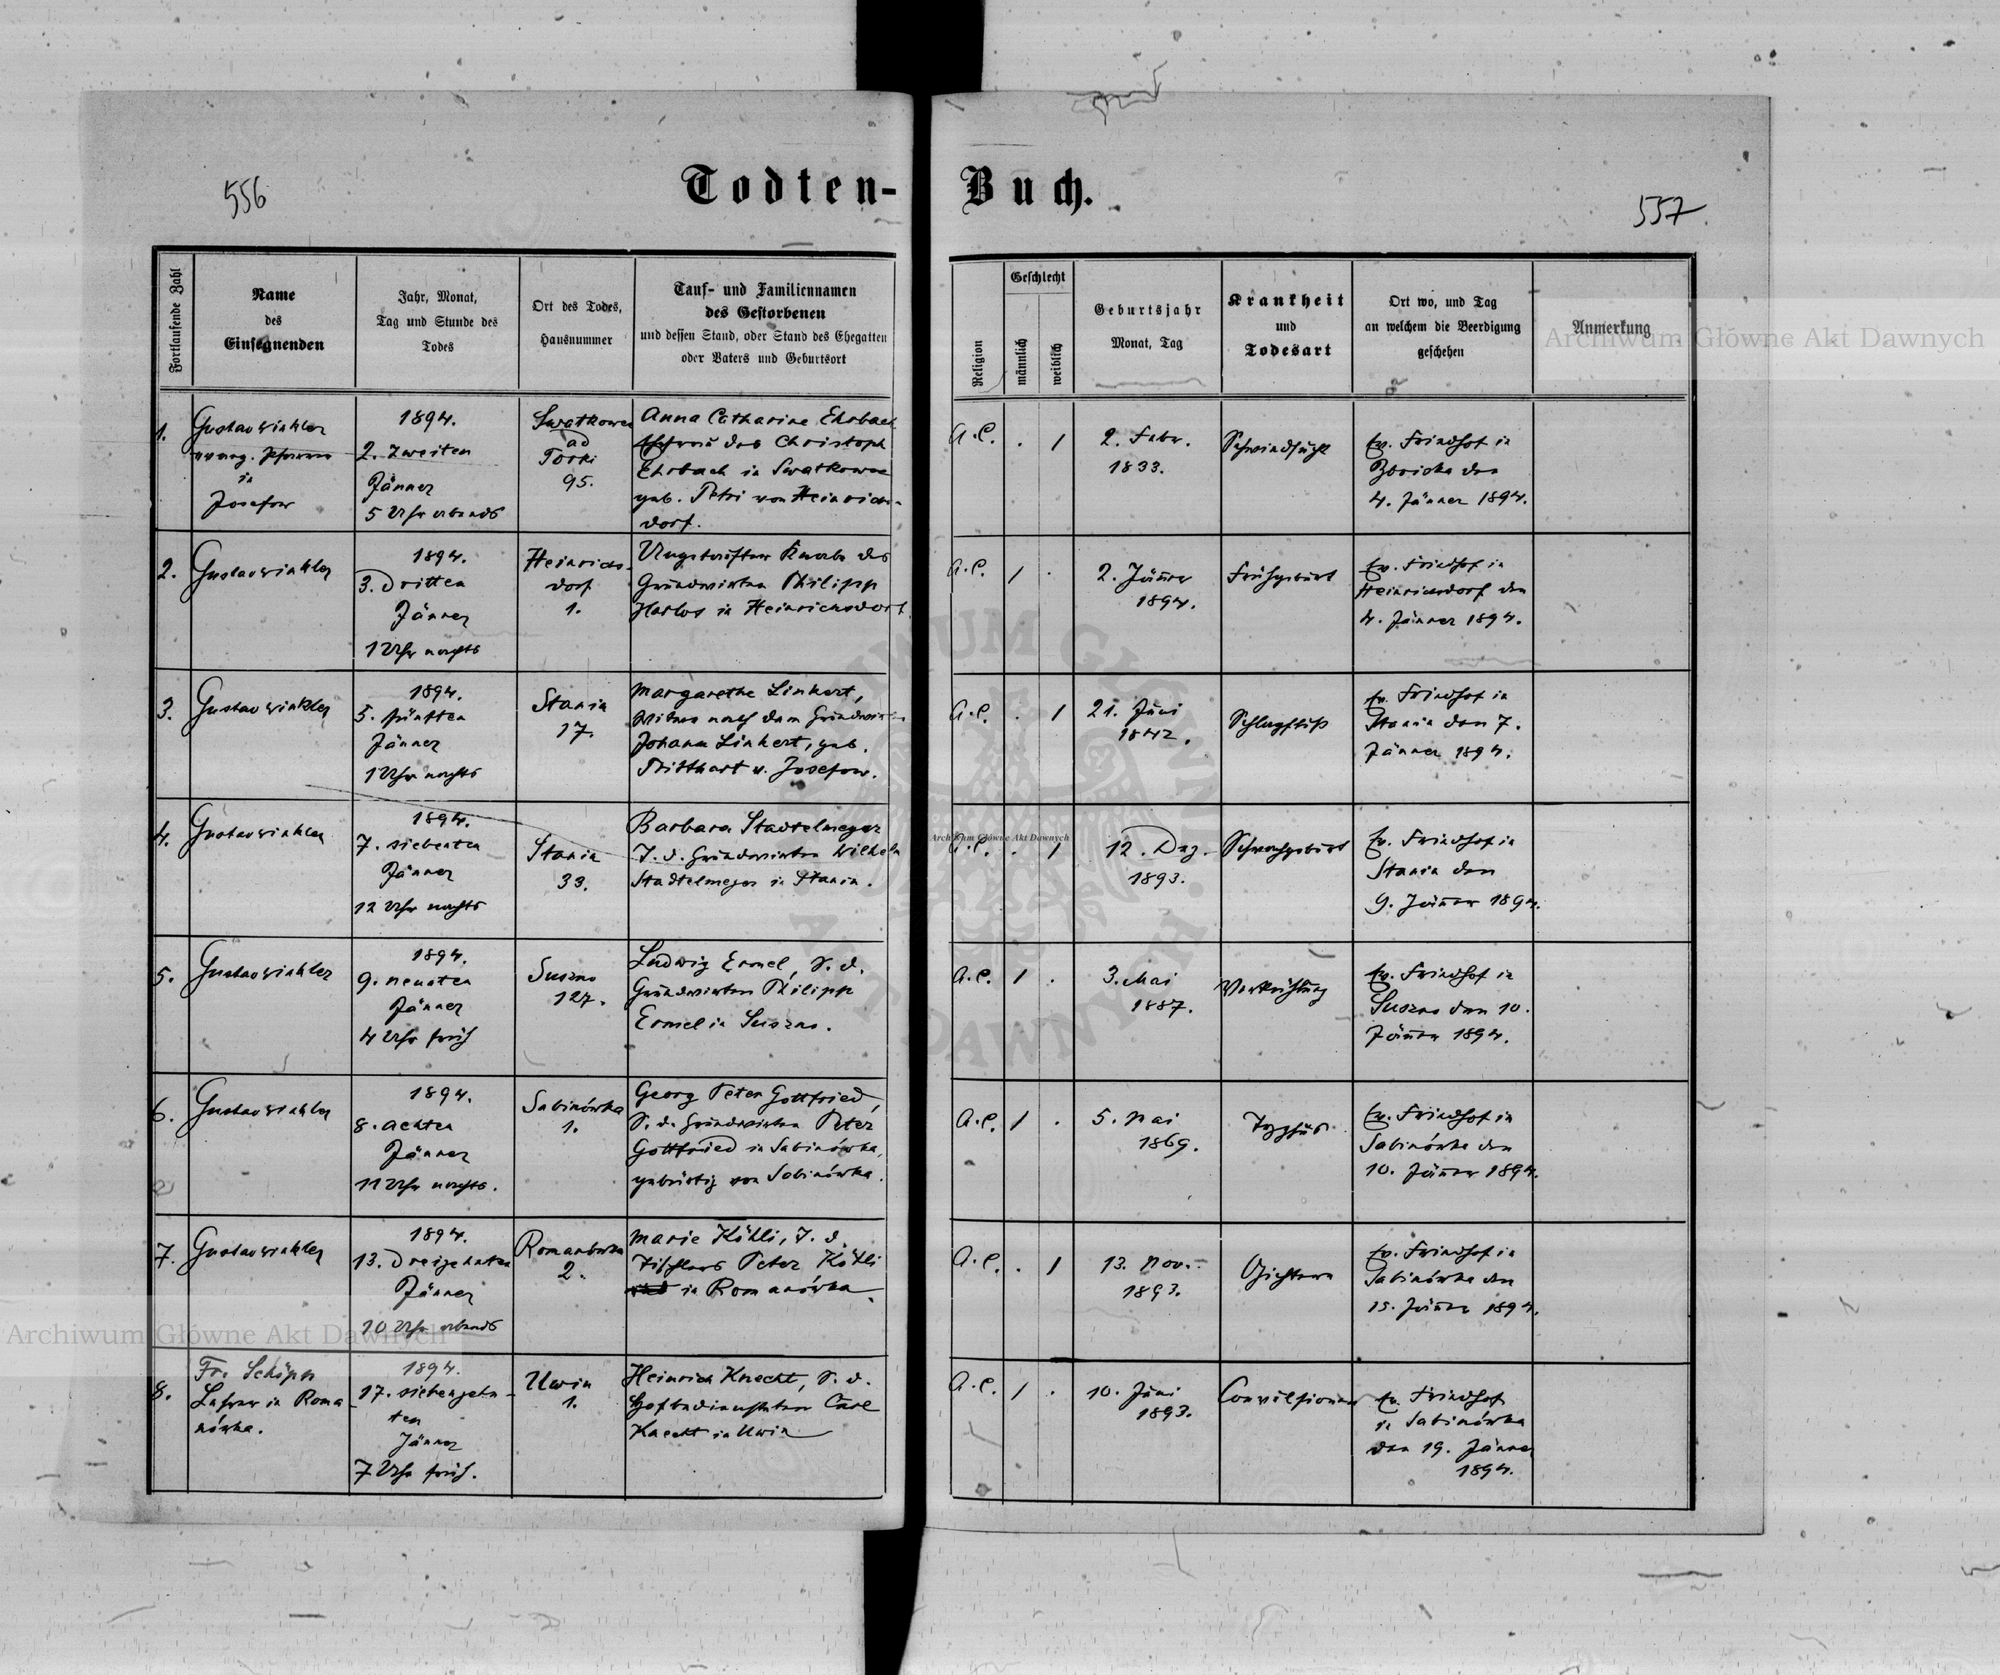 556
Todten-
Buch.
557
Fortlaufende Zahl
Name
des
Einsegnenden
Jahr, Monat,
Tag und Stunde des
Todes
Ort des Todes,
Hausnummer
Tauf- und Familiennamen
des Gestorbenen
und dessen Stand, oder Stand des Ehegatten
oder Vaters und Geburtsort
Religion
Geschlecht
männlich
weiblich
Geburtsjahr
Monat, Tag
Krankheit
und
Todesart
Ort wo, und Tag
an welchem die Beerdigung
geschehen
Anmerkung
1.
Gustav Winkler
evang. Pfarrer
in
Josefow
1894.
2. Zweiten
Jänner
5 Uhr abends
Swatkowce
ad
Torki
95.
Anna Catharine Ehrbach
Ehefrau des Christoph
Ehrbach in Swatkowce
geb. Petri von Heinrichs-
dorf.
A.C. . 1
2. Febr.
1833.
Schwindsucht
Ev. Friedhof in
den
4. Jänner 1894.
2.
Gustav Winkler
1894.
3. Dritten
Jänner
1 Uhr nachts
Heinrichs-
dorf
1.
Ungetaufter Knabe des
Grundwirten Philipp
Harlos in Heinrichsdorf
A.C. 1 .
2. Jänner
1894.
Frühgeburt
Ev. Friedhof in
Heinrichsdorf den
4. Jänner 1894.
3.
Gustav Winkler
1894.
5. fünften
Jänner
1 Uhr nachts
Stanin
17.
Margarethe Linkert,
Witwe nach dem
Johann Linkert, geb.
v. Josefow.
A.C. . 1
21. Juni
1842.
Schlagfluß
Ev. Friedhof in
Stanin den 7.
Jänner 1894.
4.
Gustav Winkler
1894.
7. siebenten
Jänner
12 Uhr nachts
Stanin
33.
Barbara Stadtelmeyer
T. d. Grundwirten Wilhelm
Stadtelmeyer in Stanin.
A.C. . 1
12. Dez.
1893.
Schwachgeburt
Ev. Friedhof in
Stanin den
9. Jänner 1894.
5.
Gustav Winkler
1894.
9. neunten
Jänner
4 Uhr früh
Suszno
127.
Ludwig Ermel, S. d.
Grundwirten Philipp
Ermel in Suszno.
A.C. 1 .
3. Mai
1887.
Ev. Friedhof in
Suszno den 10.
Jänner 1894.
6.
Gustav Winkler
1894.
8. achten
Jänner
11 Uhr nachts.
Sabinówka
1.
Georg Peter Gottfried,
S. d. Grundwirten Peter
Gottfried in Sabinówka,
gebürtig von Sabinówka.
A.C. 1 .
5. Mai
1869.
Typhus
Ev. Friedhof in
Sabinówka den
10. Jänner 1894.
7.
Gustav Winkler
1894.
13. Dreizehnten
Jänner
10 Uhr abends
Romanówka
2.
Marie Köhli, T. d.
Tischlers Peter Köhli
in Romanówka.
A.C. . 1
13. Nov.
1893.
Gichtern
Ev. Friedhof in
Sabinówka den
15. Jänner 1894.
8.
Fr. Schöpp
Lehrer in Roma
nówka.
1894.
17. siebenzehn-
ten
Jänner
7 Uhr früh.
Uwin
1.
Heinrich Knecht, S. d.
Hofbediensteten Carl
Knecht in Uwin
A.C. 1 .
10. Juni
1893.
Convulsionen
Ev. Friedhof
in Sabinówka
den 19. Jänner
1894.
Archiwum Główne Akt Dawnych
Archiwum Główne Akt Dawnych
Archiwum Główne Akt Dawnych